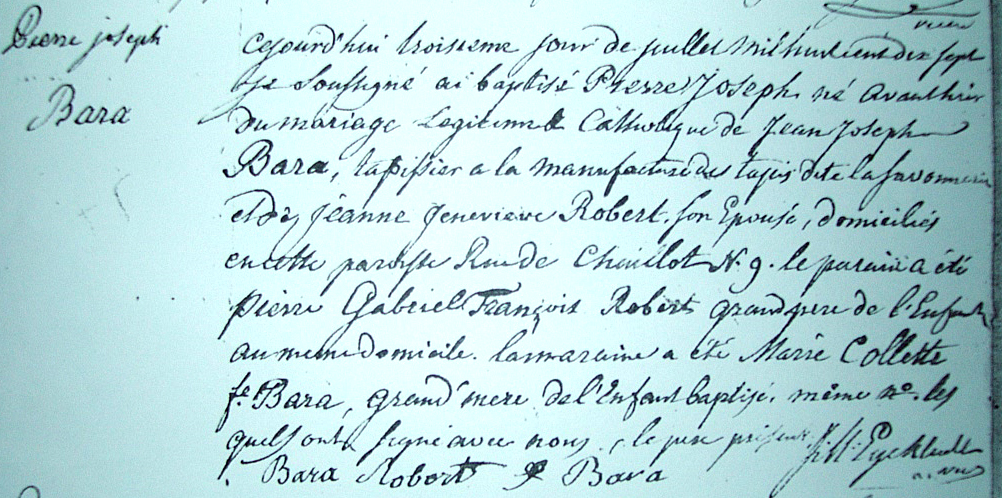 vicaire
Pierre joseph
Bara
Cejourd'hui troisieme jour de juillet mil huit cent dix sept
je Soussigné ai baptisé Pierre Joseph né avanthier
du mariage Legitime & Catholique de Jean Joseph
Bara, tapissier a la manufacture des tapis dite la savonnerie
et de jéanne Jenevieve Robert, son Epouse, domiciliés
en cette paroisse Rue de Chaillot N. 9. le parain a été
pierre Gabriel François Robert grand pere de l'Enfant
au meme domicile. la maraine a été Marie Collette
fe. Bara, grand'mere de l'Enfant baptisé, même no. les
quels ont signé avec nous, le pere présent
Bara Robert Bara